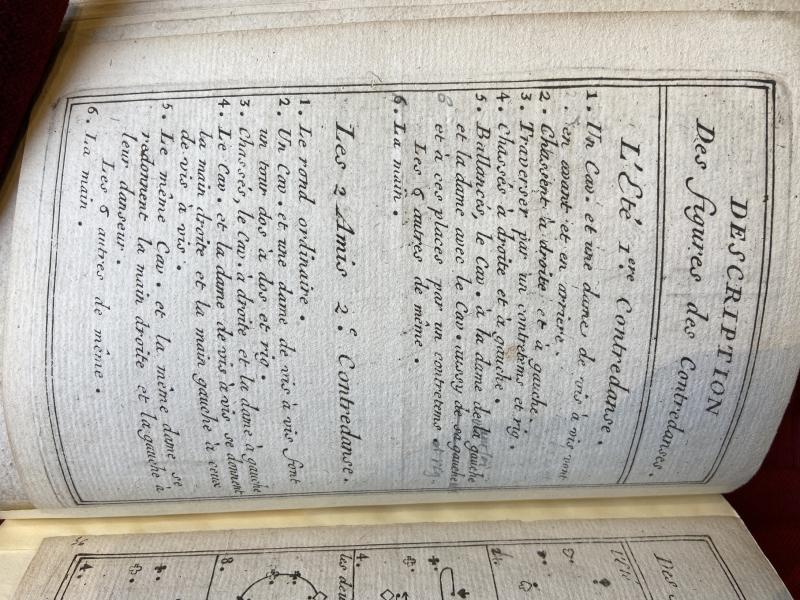 DESCRIPTION
Des figures des Contredanses.
L'Eté 1.ere Contredanse.
1. Un Cav. et une dame de vis à vis vont
en avant et en arriere.
2. Chassent à droite et à gauche.
3. Traverser par un contretems et rig.
4. Chassés à droite et à gauche.
5. Ballancés, le Cav. à la dame de la gauche
et la dame avec le Cav. aussy de sa gauche
6 et à ces places par un contretems et rig.
Les 6 autres de même.
6. La main.
Les 2 Amis 2.e Contredanse.
1. Le rond ordinaire.
2. Un Cav. et une dame de vis à vis font
un tour dos à dos et rig.
3. Chassés, le Cav. à droite et la dame à gauche
4. Le Cav. et la dame de vis à vis se donnent
la main droite et la main gauche à ceux
de vis à vis.
5. Le même Cav. et la même dame se
redonnent la main droite et la gauche à
leur danseur.
Les 6 autres de même.
6. La main.
Des
l'Eté
4.
les deu
8.
4.